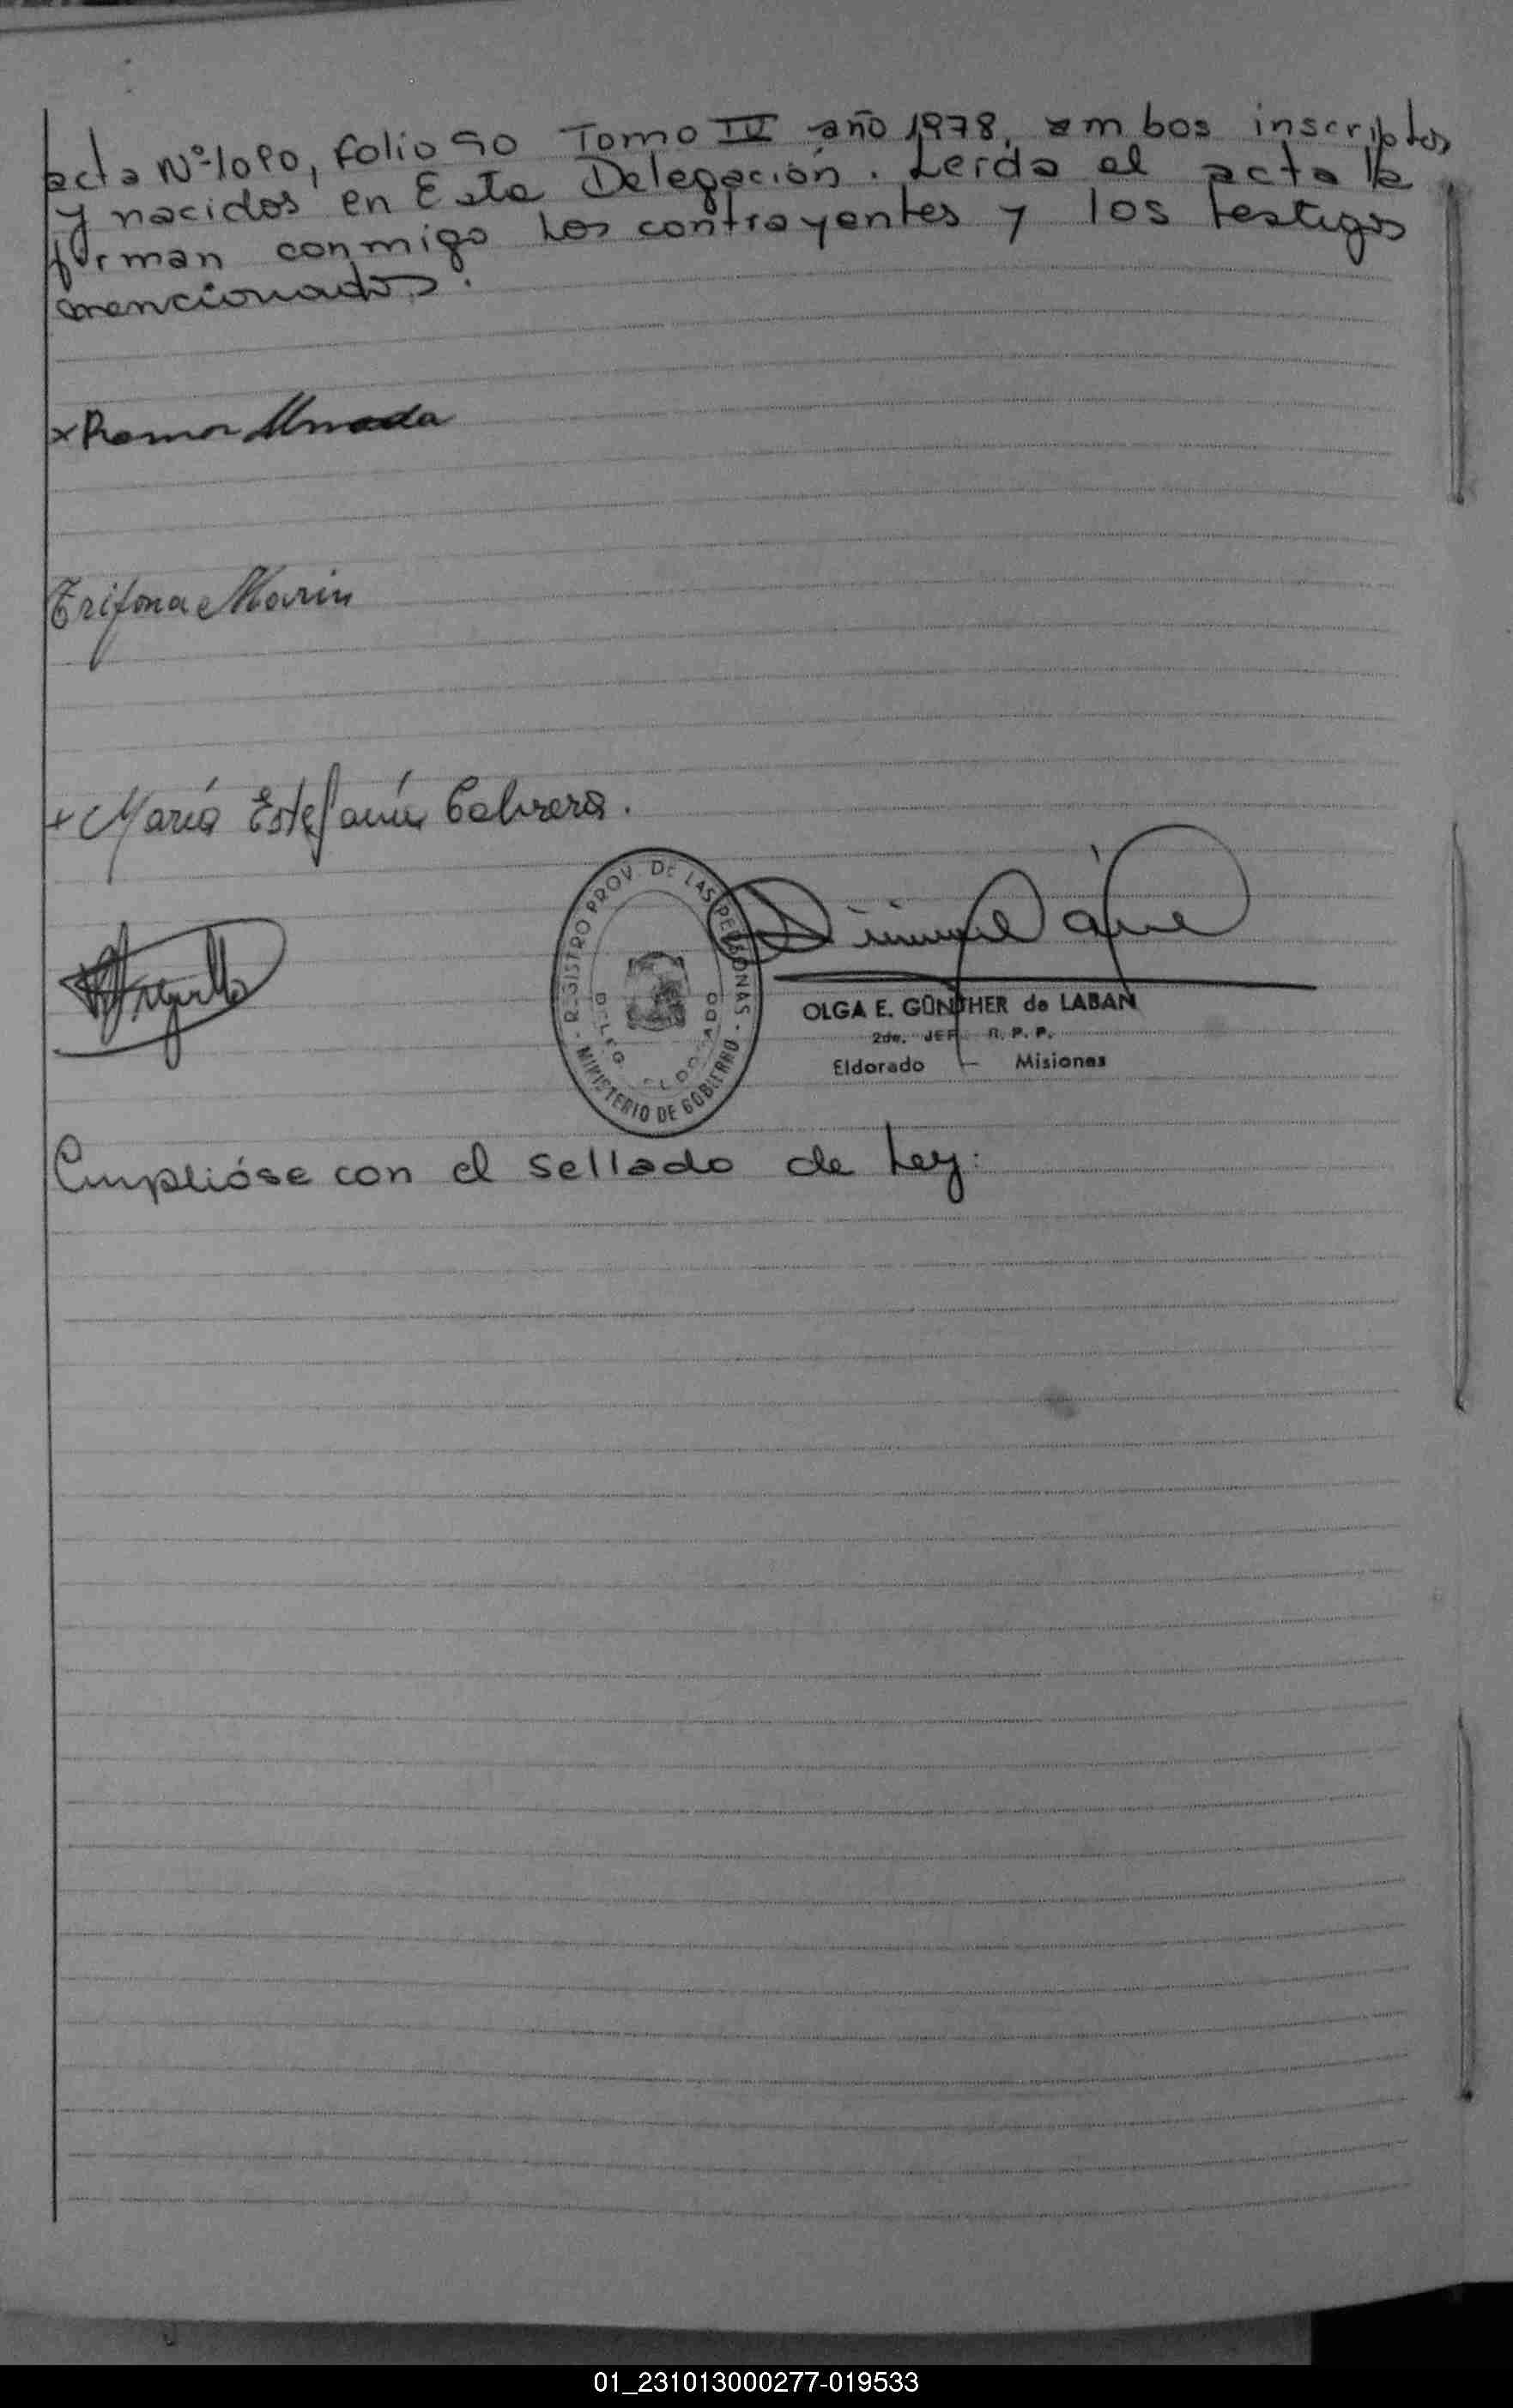 acta Nº 1080, folio 90 Tomo IV año 1978, ambos inscriptos
y nacidos en Esta Delegación. Leída el acta la
firman conmigo Los contrayentes y los testigos
mencionados.
x Ramon
Trifona Marin
x María Estefanía Cabrera.
REGISTRO PROV. DE LAS PERSONAS
DELEG. ELDORADO
MINISTERIO DE GOBIERNO
OLGA E. GÜNTHER de LABAN
2da. JEF R. P. P.
Eldorado — Misiones
Cumplióse con el sellado de Ley.
01_231013000277-019533